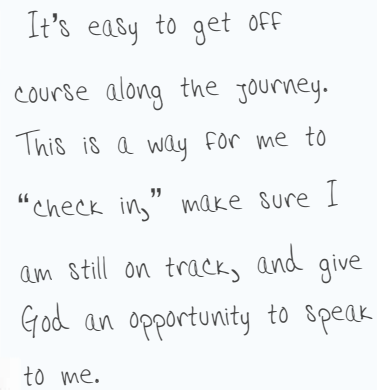 It's easy to get off
course along the journey.
This is a way for me to
“check in,” make sure I
am still on track, and give
God an opportunity to speak
to me.